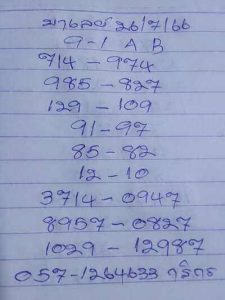 มาเลย์ 26/7/66
9-1 A B
714 - 974
985 - 827
129 - 109
91 - 97
85 - 82
12 - 10
3714 - 0947
8957 - 0827
1029 - 12987
057-1264633